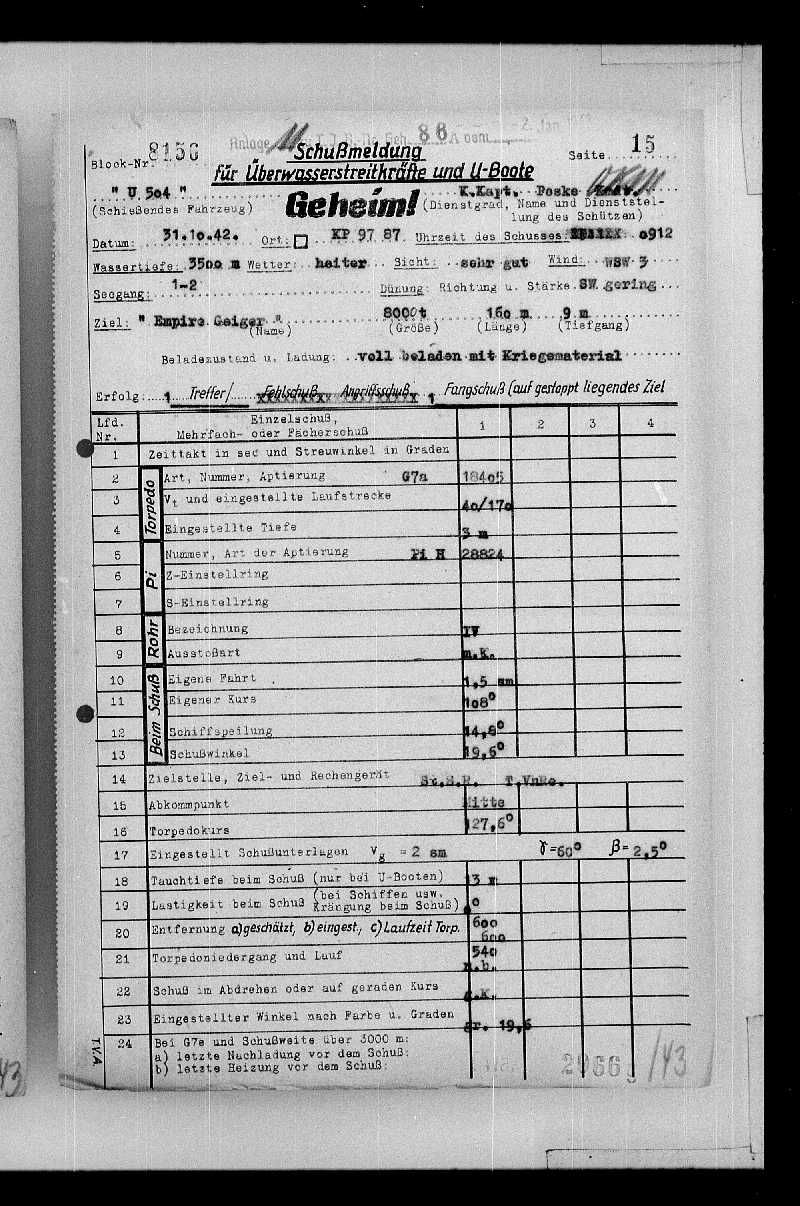 Anlage 11 86 A vom 2. Jan.
Block-Nr. 8156 Schußmeldung Seite 15
für Überwasserstreitkräfte und U-Boote
" U 504 " Geheim! K.Kapt. Poske
(Schießendes Fahrzeug) (Dienstgrad, Name und Dienststel-
lung des Schützen)
Datum: 31.10.42. Ort: KP 97 87 Uhrzeit des Schusses: 0912
Wassertiefe: 3500 m Wetter: heiter Sicht: sehr gut Wind: WSW 3
Seegang: 1-2 Dünung: Richtung u. Stärke SW. gering
Ziel: " Empire Geiger " 8000t 160 m 9 m
(Name) (Größe) (Länge) (Tiefgang)
Beladezustand u. Ladung: voll beladen mit Kriegsmaterial
Erfolg: 1 Treffer/ Fehlschuß Angriffsschuß 1 Fangschuß (auf gestoppt liegendes Ziel
Lfd. Nr. Einzelschuß, 1 2 3 4
Mehrfach- oder Fächerschuß
1 Zeittakt in sec und Streuwinkel in Graden
Torpedo
2 Art, Nummer, Aptierung G7a 18405
3 Vt und eingestellte Laufstrecke 40/170
4 Eingestellte Tiefe 3 m
Pi
5 Nummer, Art der Aptierung Pi H 28824
6 Z-Einstellring
7 S-Einstellring
Rohr
8 Bezeichnung IV
9 Ausstoßart m.k.
Beim Schuß
10 Eigene Fahrt 1,5 sm
11 Eigener Kurs 108°
12 Schiffspeilung 14,8°
13 Schußwinkel 19,6°
14 Zielstelle, Ziel- und Rechengerät St.S.R. T.VhRe.
15 Abkommpunkt Mitte
16 Torpedokurs 127,6°
17 Eingestellt Schußunterlagen Vg = 2 sm γ=60° β=2,5°
18 Tauchtiefe beim Schuß (nur bei U-Booten) 13 m
19 Lastigkeit beim Schuß (bei Schiffen usw. Krängung beim Schuß) 0
20 Entfernung a) geschätzt, b) eingest., c) Laufzeit Torp. 600
600
21 Torpedoniedergang und Lauf 540
n.b.
22 Schuß im Abdrehen oder auf geraden Kurs g.K.
23 Eingestellter Winkel nach Farbe u. Graden gr. 19,6
24 Bei G7e und Schußweite über 3000 m:
a) letzte Nachladung vor dem Schuß:
b) letzte Heizung vor dem Schuß:
T.V.A.
/43
43